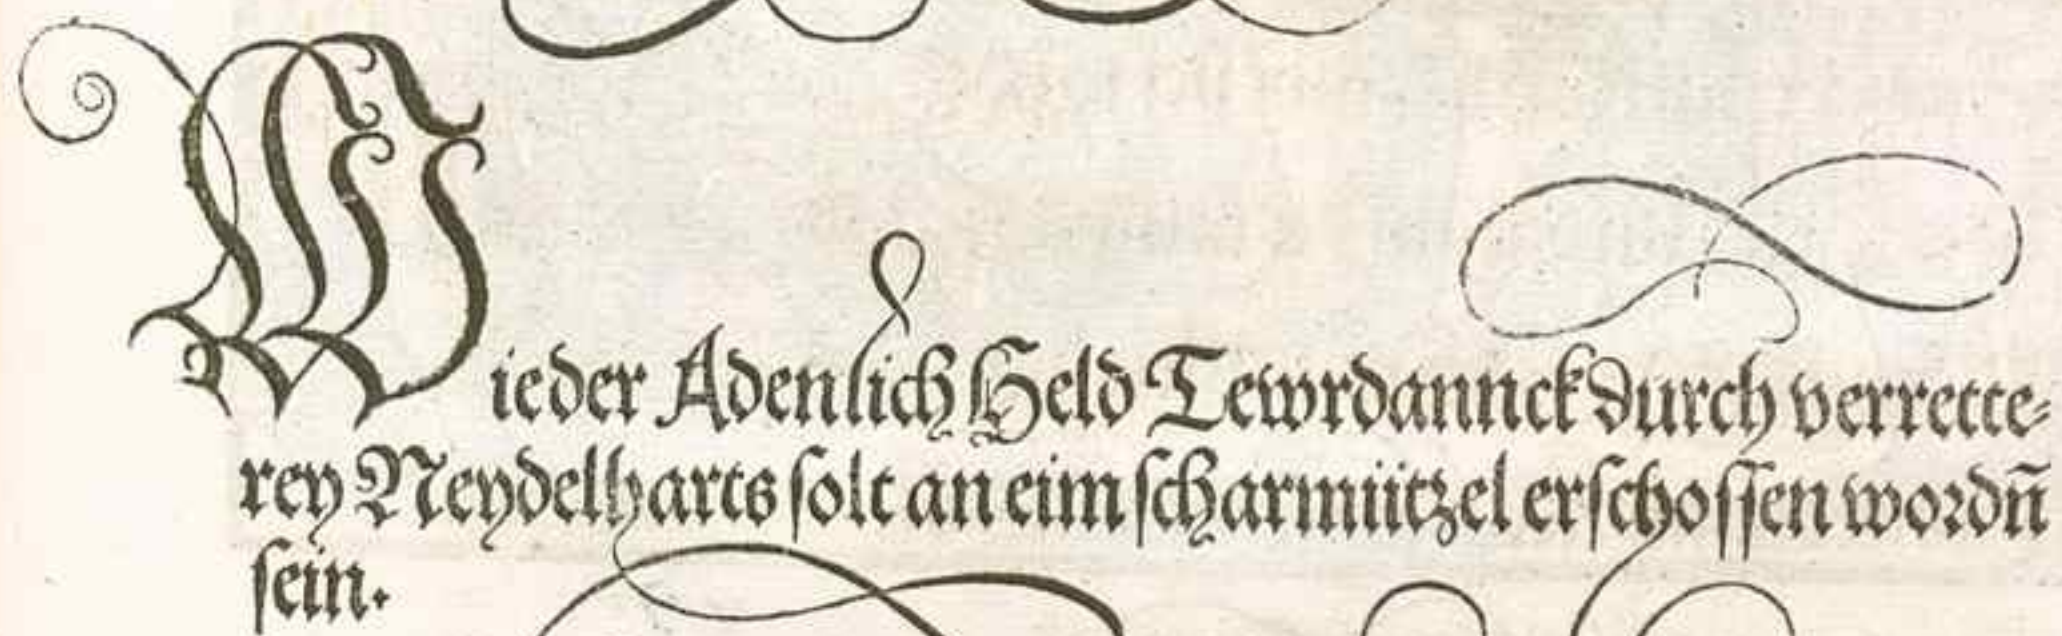 Wie der Adenlich Held Tewrdannck durch verrette-
rey Neydelharts solt an eim scharmützel erschossen wordn̄
sein.